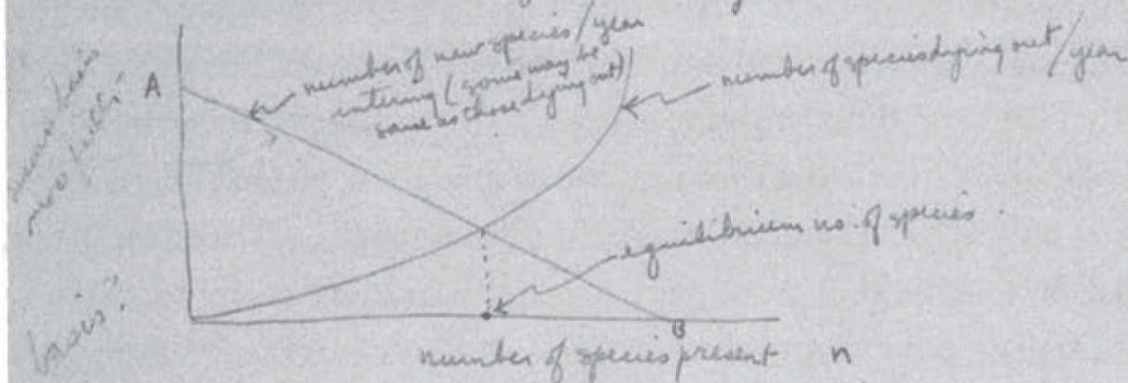 number of new species/year
entering (some may be
same as those dying out)
number of species dying out/year
A
equilibrium no. of species.
B
number of species present n
basis?